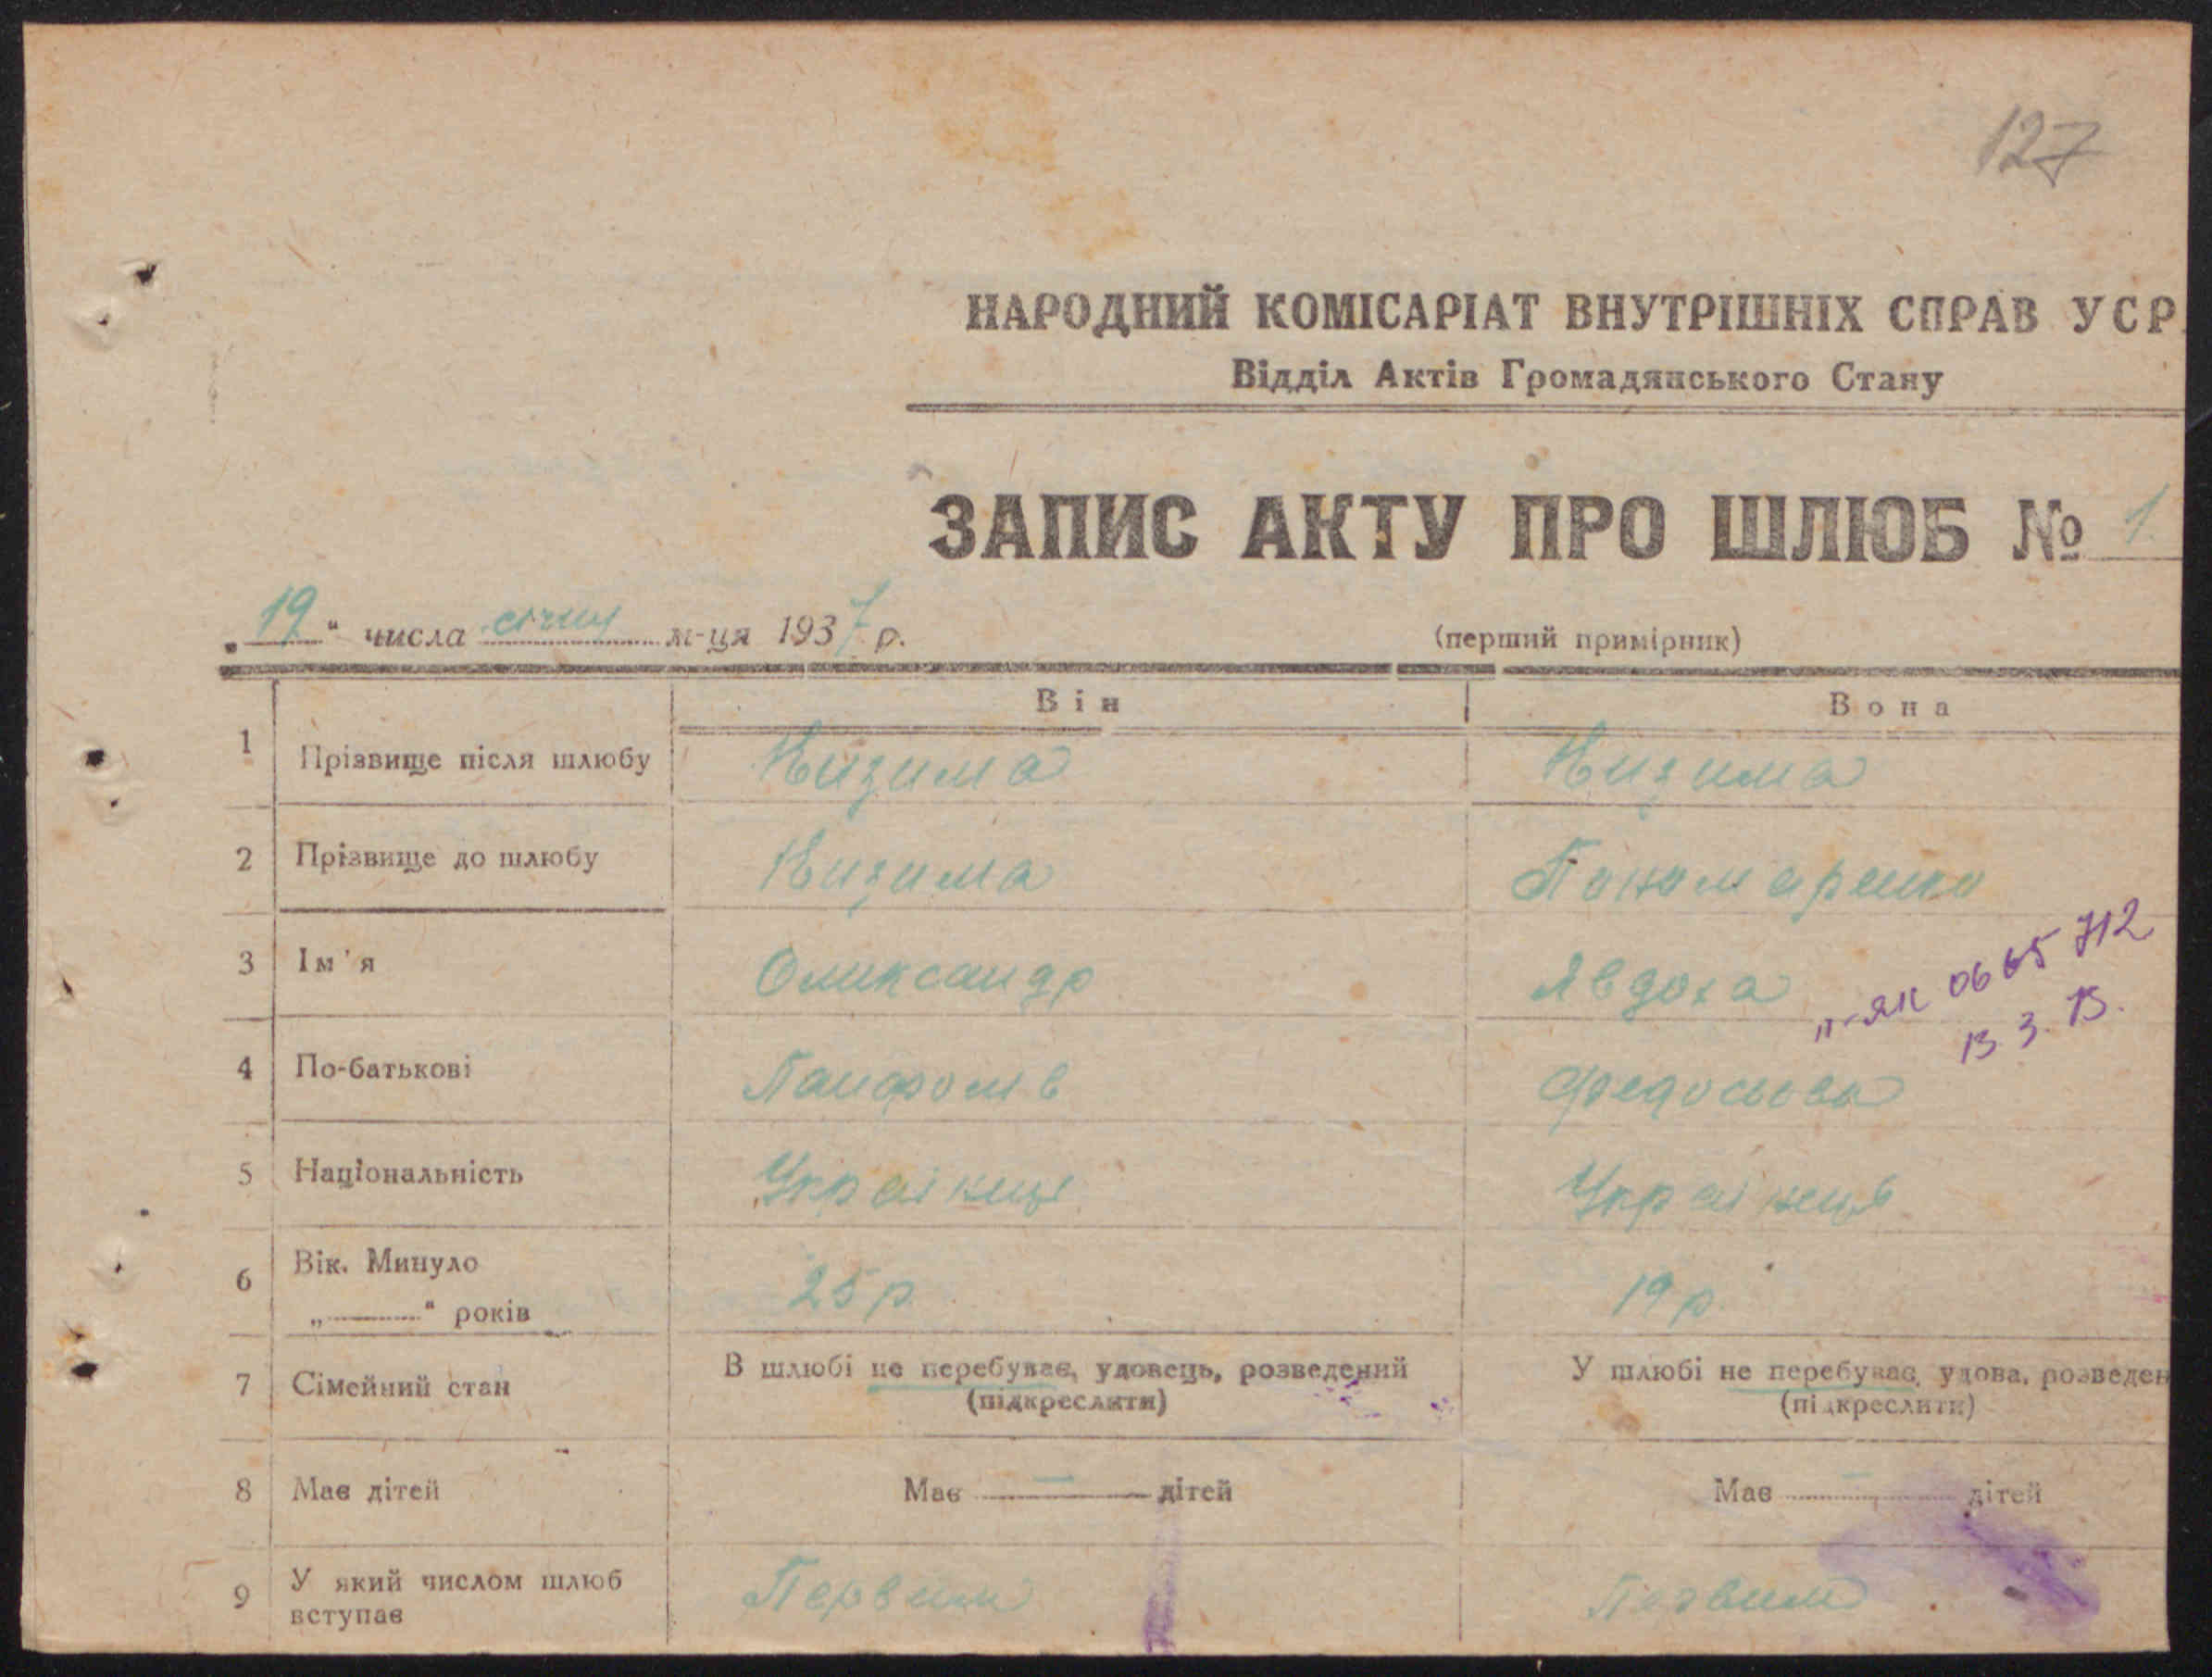 127
НАРОДНИЙ КОМІСАРІАТ ВНУТРІШНІХ СПРАВ УСР
Відділ Актів Громадянського Стану
ЗАПИС АКТУ ПРО ШЛЮБ № 1.
„19“ числа січня м-ця 1937 р. (перший примірник)
Він Вона
1 Прізвище після шлюбу Низима Низима
2 Прізвище до шлюбу Низима Пономаренко
3 Ім'я Олександр Явдоха
0665 712
4 По-батькові Федосьова
13. 3.
5 Національність Українець Українець
6 Вік. Минуло 25 р. 19 р.
„ “ років
7 Сімейний стан В шлюбі не перебуває, удовець, розведений У шлюбі не перебуває, удова, розведен
(підкреслити) (підкреслити)
8 Має дітей Має — дітей Має — дітей
9 У який числом шлюб Первим Первим
вступає